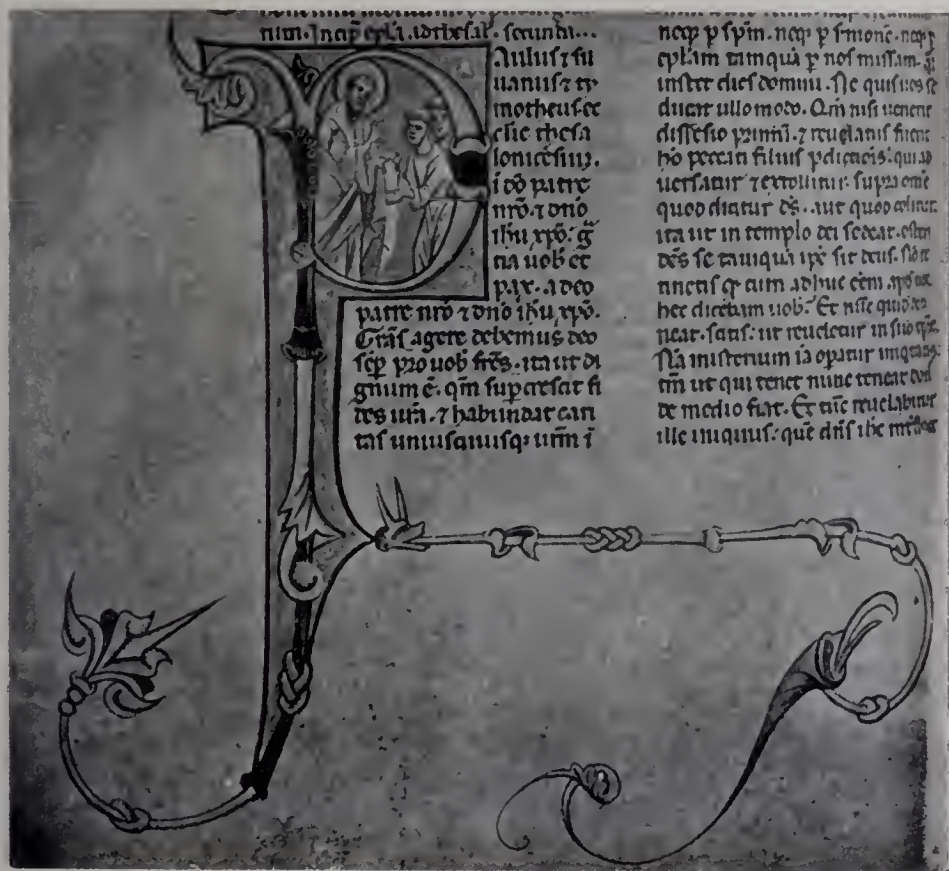 num. Incip̄ epl̄a. ad thesal̄. secunda...
Aulus ⁊ sil
uanus ⁊ ty
motheus ec
clie thesa
lonicēsiū.
ī dō patre
nr̄o. ⁊ dn̄o
ih̄u xp̄o. ḡ
tia uob̄ et
pax. a deo
patre nr̄o ⁊ dn̄o ih̄u xp̄o.
Grās agere debemus deo
sēp̄ pro uob̄ fr̄es. ita ut di
gnum ē. qm̄ supcrescit fi
des ur̄a. ⁊ habundat cari
tas uniuscuiusq; ur̄m ī
neq; p̄ sp̄m. neq; p̄ smone. neq; p̄
epl̄am tamquā p̄ nos missam. q̄
instet dies domini. Ne quis uos se
ducat ullo modo. Qm̄ nisi uenerit
dissesio primū. ⁊ reuelatus fuerit
hō peccati filius pdictōis. qui ad
uersatur ⁊ extollitur. supra om̄e
quod dicitur d̄s. aut quod colitur.
ita ut in templo dei sedeat. osten
dēs se tamquā ip̄e sit deus.
tinetis q̄ cum adhuc eēm. apō uos
hec dicebam uob̄. Et nūc quid de
neat. scitis. ut reueletur in suo tp̄e.
Nā misterium iā opatur iniqtatis.
tm̄ ut qui tenet nunc teneat don
de medio fiat. Et tūc reuelabitur
ille iniquus. quē dn̄s ih̄c